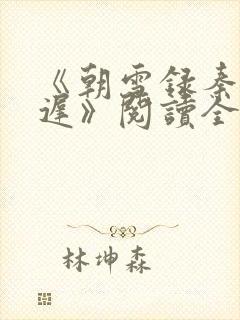 《朝雪錄秦
遲》閱讀全
林坤森